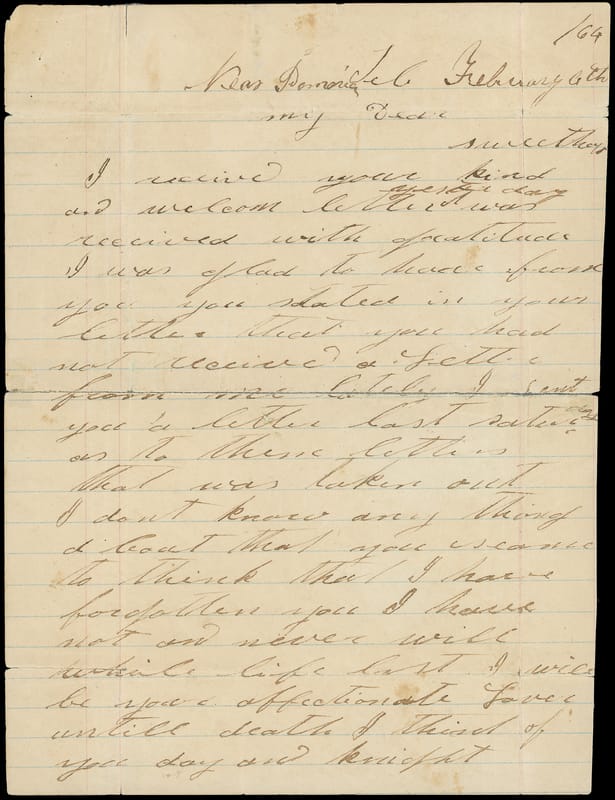 164
Near Feb February 6th
my Dear
sweethart
I receive your kind
yesterday
and welcom letter was
received with gratitude
I was glad to heare from
you you stated in your
letter that you had
not receive a Letter
from me lately I sent
you a letter last saturday
as to them letters
that was taken out
I dont know any thing
a bout that you seame
to think that I have
forgotten you I have
not and never will
while life last I will
be your affectionate Lover
untill death I think of
you day and knight